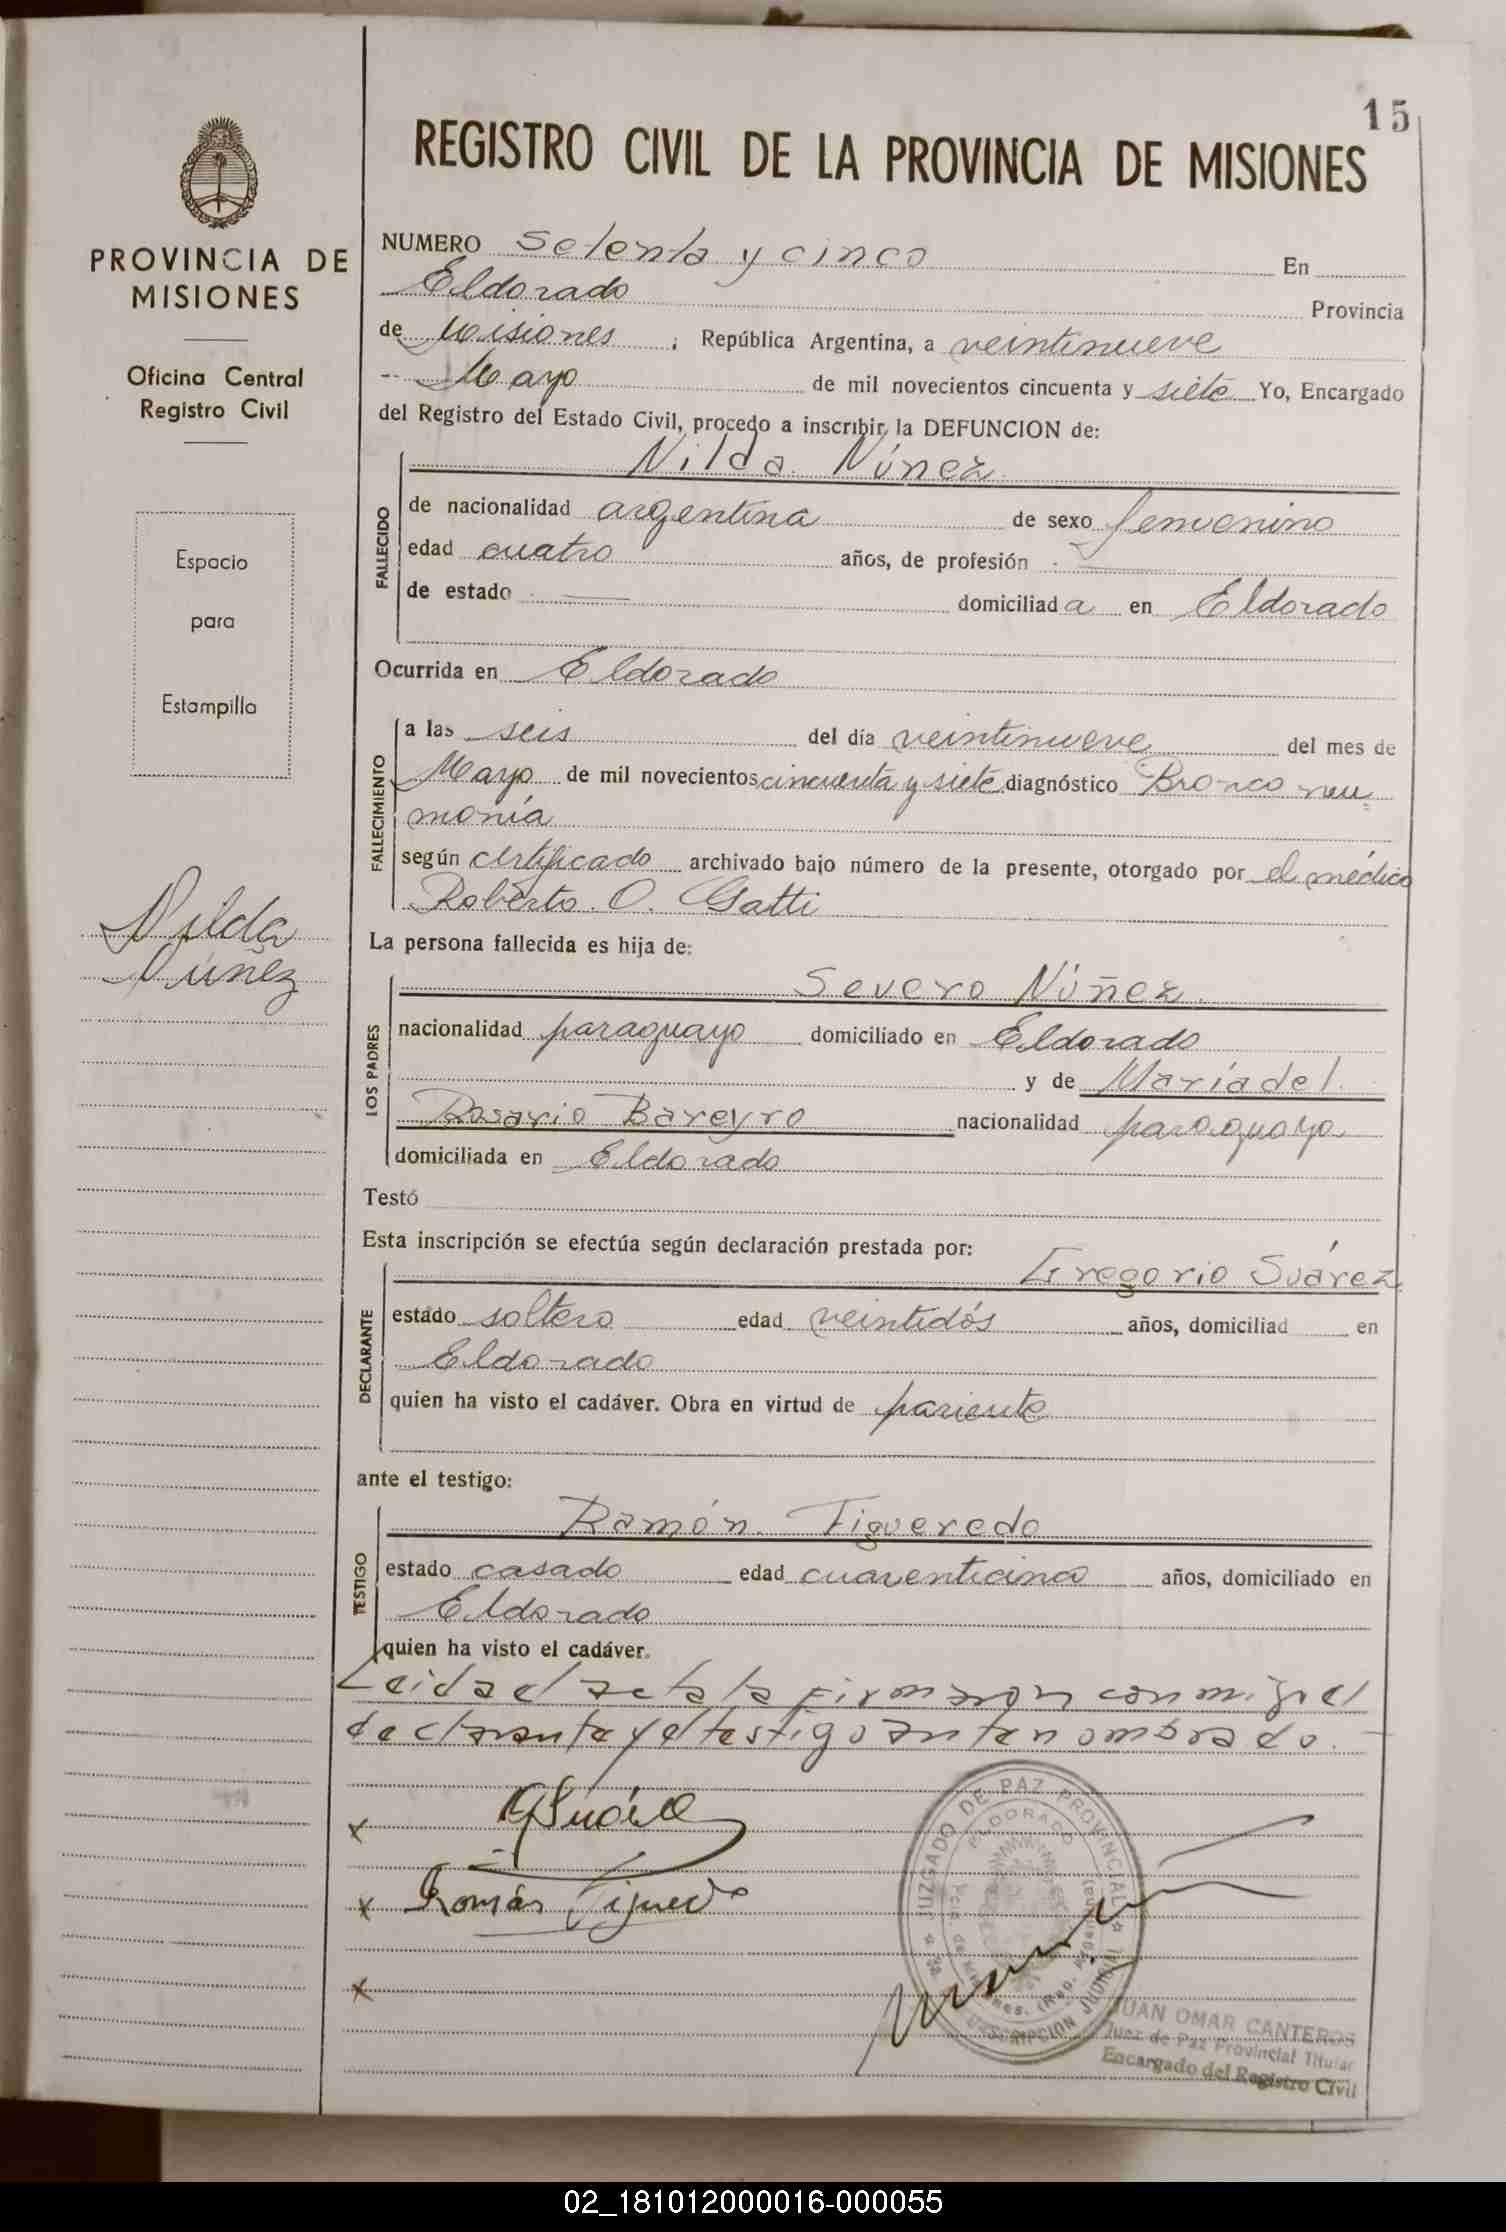 15
REGISTRO CIVIL DE LA PROVINCIA DE MISIONES
PROVINCIA DE
MISIONES
Oficina Central
Registro Civil
Espacio
para
Estampilla
Nilda
Núñez
NUMERO Setenta y cinco En
Eldorado Provincia
de Misiones , República Argentina, a veintinueve
Mayo de mil novecientos cincuenta y siete Yo, Encargado
del Registro del Estado Civil, procedo a inscribir la DEFUNCION de:
Nilda Núnez
FALLECIDO
de nacionalidad argentina de sexo femenino
edad cuatro años, de profesión
de estado domiciliad a en Eldorado
Ocurrida en Eldorado
FALLECIMIENTO
a las seis del día veintinueve del mes de
Mayo de mil novecientos cincuenta y siete diagnóstico Bronco neu
monía
según certificado archivado bajo número de la presente, otorgado por el médico
Roberto O. Gatti
La persona fallecida es hija de:
LOS PADRES
Severo Núñez
nacionalidad paraguayo domiciliado en Eldorado
y de María del
Rosario Bareyro nacionalidad paraguaya
domiciliada en Eldorado
Testó
Esta inscripción se efectúa según declaración prestada por:
DECLARANTE
Gregorio Suárez
estado soltero edad veintidós años, domiciliad en
Eldorado
quien ha visto el cadáver. Obra en virtud de pariente
ante el testigo:
TESTIGO
Ramón Figueredo
estado casado edad cuarenticinco años, domiciliado en
Eldorado
quien ha visto el cadáver.
Leida el acta la firmaron conmigo el
declarante y el testigo ante nombrado.
GSuárez
Román Figueredo
JUZGADO DE PAZ PROVINCIAL
ELDORADO
JUAN OMAR CANTEROS
Juez de Paz Provincial Titular
Encargado del Registro Civil
02_181012000016-000055